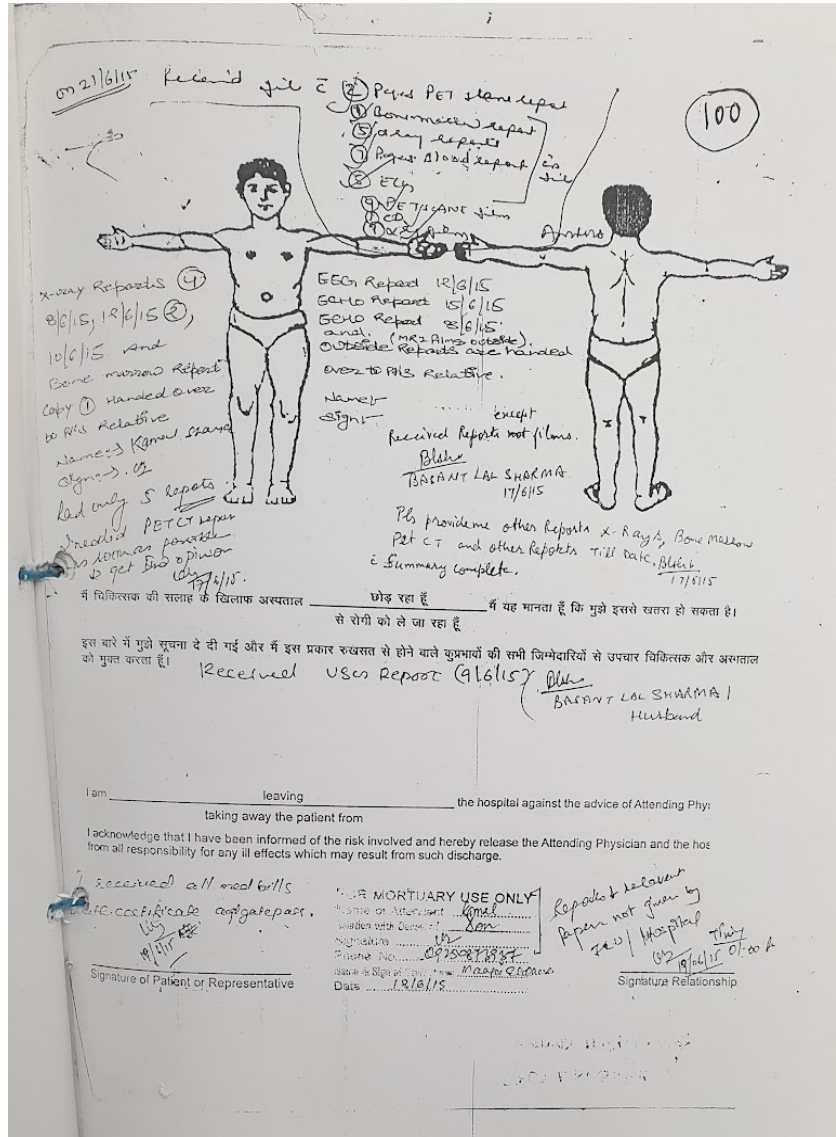 on 21/6/15 Received file c̄ ② Pages PET scan report
④ Bone marrow report
⑤ x-ray reports
⑦ Pages Blood report in file
⑧ ECG
PETSCANE film
CD
100
X-ray Reports ④
8/6/15, 12/6/15 ②,
10/6/15 And
Bone marrow Report
Copy ① Handed over
to Pt's Relative
Name:- Kamal
Sign:-
Had only 5 reports
I need PETCT report
as soon as possible
to get IInd opinion
17/6/15.
EEG Report 12/6/15
ECHO Report 15/6/15
ECHO Report 8/6/15
and. (MRI films outside).
outside Reports are handed
over to Pt's Relative.
Name:-
Sign:-
except
Received Reports not films.
BASANT LAL SHARMA
17/6/15
Pls provide me other Reports X-Rays, Bone Marrow
Pet CT and other Reports Till Date.
c̄ Summary complete.
17/6/15
मैं चिकित्सक की सलाह के खिलाफ अस्पताल छोड़ रहा हूँ मैं यह मानता हूँ कि मुझे इससे खतरा हो सकता है।
से रोगी को ले जा रहा हूँ
इस बारे में मुझे सूचना दे दी गई और मैं इस प्रकार रुखसत से होने वाले कुप्रभावों की सभी जिम्मेदारियों से उपचार चिकित्सक और अस्पताल
को मुक्त करता हूँ।
Received USG Report (9/6/15)
BASANT LAL SHARMA /
Husband
I am leaving the hospital against the advice of Attending Phy
taking away the patient from
I acknowledge that I have been informed of the risk involved and hereby release the Attending Physician and the hos
from all responsibility for any ill effects which may result from such discharge.
I received all med bills
certificate and gatepass.
Signature of Patient or Representative
FOR MORTUARY USE ONLY
Name of Attendant Kamal
Relation with Son
Signature
Phone No.
Date 18/6/15
Reports & relevant
papers not given by
ICU / Hospital
18/06/15
Signature Relationship